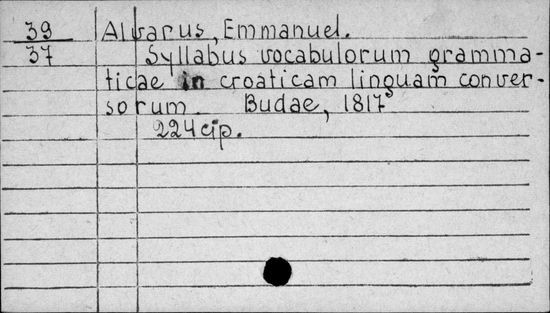 39 Alvarus, Emmanuel.
37 Syllabus vocabulorum gramma-
ticae in croaticam linguam conver-
sorum Budae, 1817
224 стр.